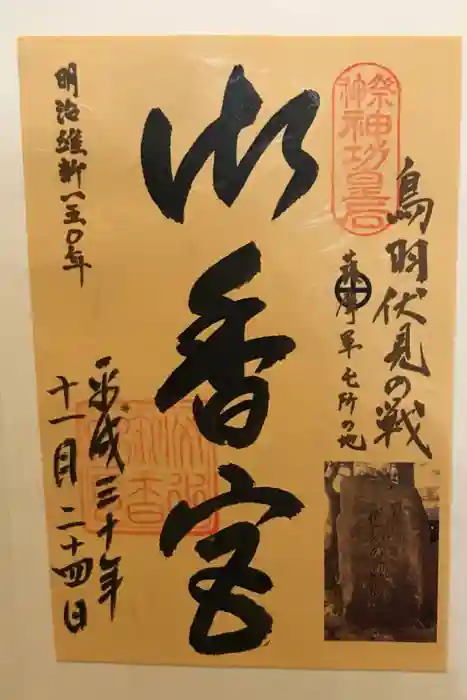 祭神
神功皇后
鳥羽伏見の戦
薩摩軍屯所の地
御香宮
明治維新一五〇年
平成三十年
十一月二十四日